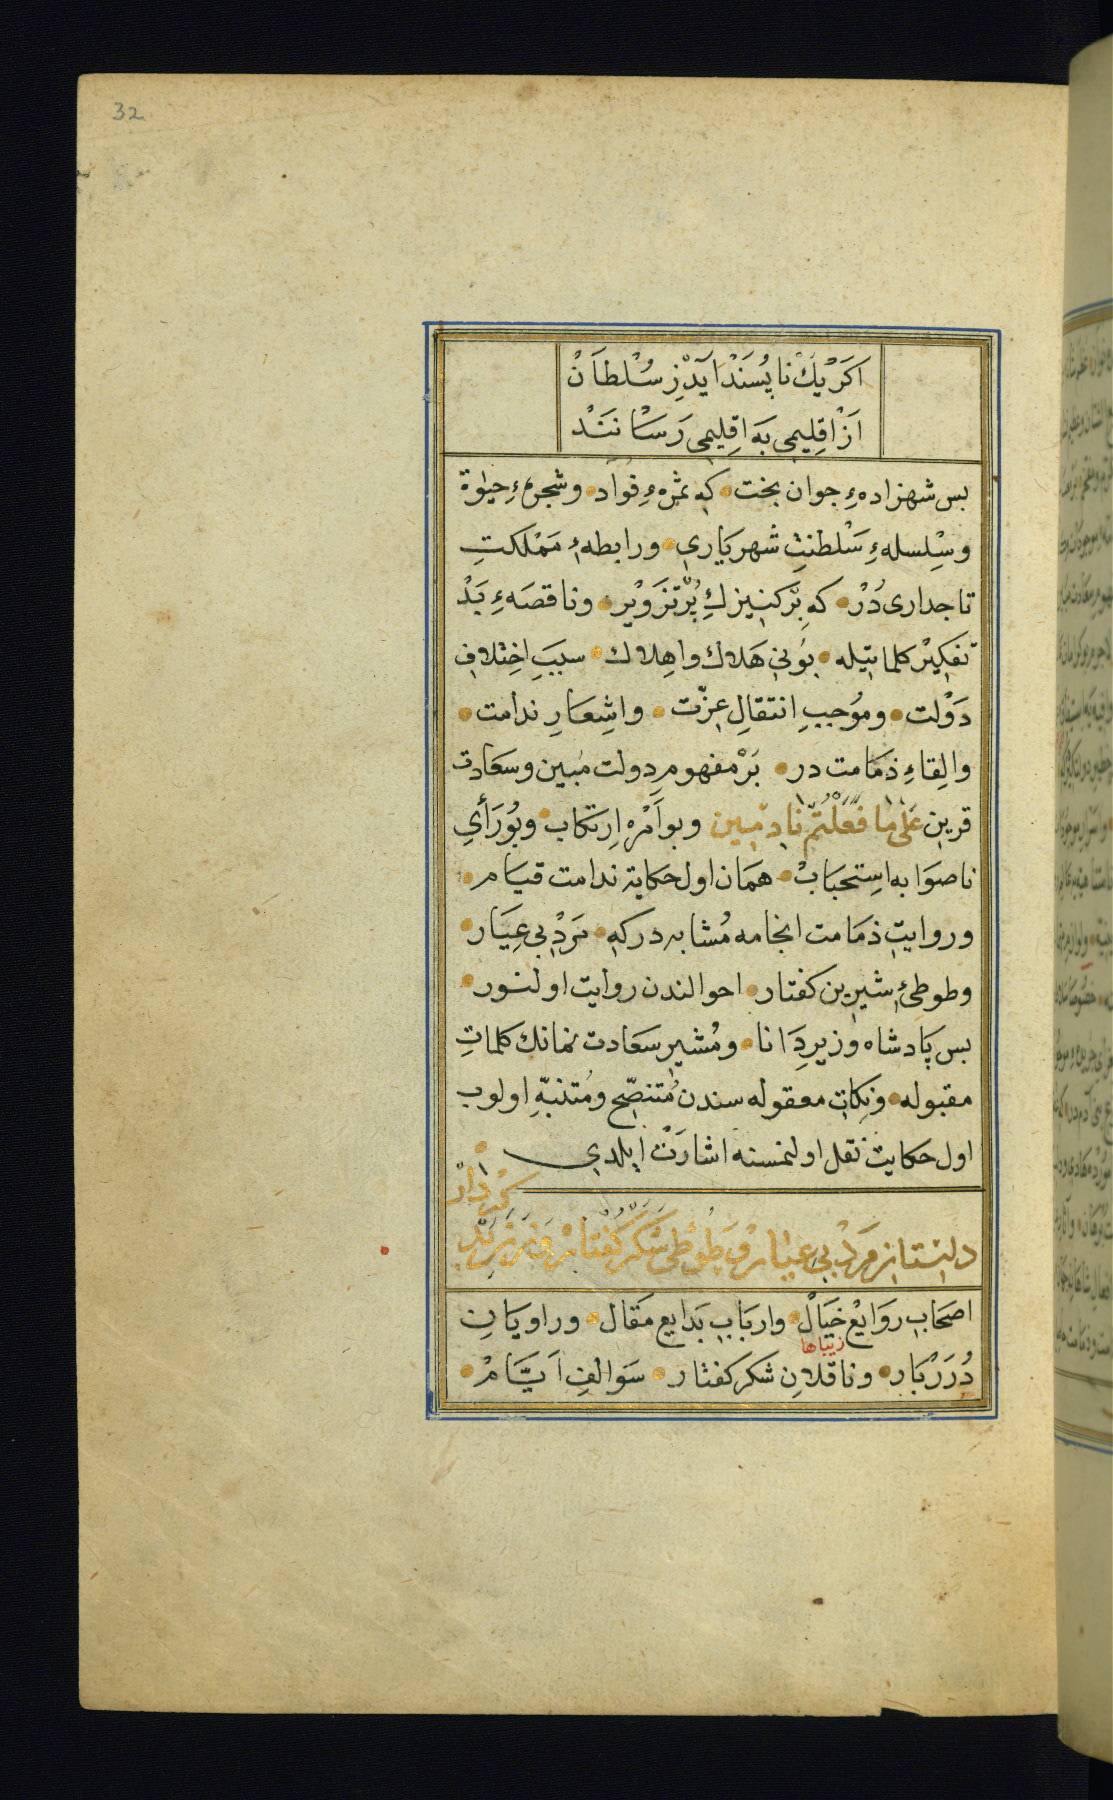 32
اَكَرْ يَكْ نَا پُسَنْد آيَدْ زِ سُلْطَانْ
اَزْ اِقْلِيمِى بَه اِقْلِيمِى رَسَانَنَدْ
بس شهزاده‌ءِ جوان بخت كه ثمره‌ءِ فواد و شجره‌ءِ حيٰوة
وسِلسله‌ءِ سَلْطنتِ شهرياري ورابطه‌ءِ مَمْلكتِ
تاجدارى دُرْ كه بِرْ كنيزكِ پُرْ تزويْر وناقصه‌ءِ بَدْ
تفكيرْ كلماتيله بُوني هَلاك واهِلاك سببِ اِختلافِ
دَوْلت ومُوجبِ انتقالِ عِزّت واشِعَارِ ندامت
والِقاءِ ذمَامت در بَرْ مفهومِ دولت مُبين وسعَادت
قرين عَلٰى مَا فَعَلْتُمْ نَادِمِين وبو اَمْره اِرتكاب وبُو رَأي
ناصوَابه اِستحبَابْ همَان اول حكاية ندامت قيام
وروايتِ ذمَامت انجامه مُشابه در كه مَرْدِ بي عِيَار
وطوطئِ شيرين كفتار احوالندن روايت اولنور
بس پادشاه وزيرِ دَانا ومُشير سعَادت نمانك كلماتِ
مقبوله ونِكاتِ معقوله سندن مُتنصّح ومُتنبّهِ اولوب
اول حكايت نقل اولنمسنه اشارَتْ ايلدي
دلستان مَرْدِ بِي عِيَارْ وَ طُوطِى شَكَرْ كُفْتَارْ وَ زَنِ بَدْ
كِرْدَارْ
اصحَابِ رَوَايعْ خيَالْ واربَابِ بَدَايع مَقَال وراويَانِ
زيباها
دُرَرْ بَار وناقلانِ شكر كفتار سَوَالفِ اَيَّامْ